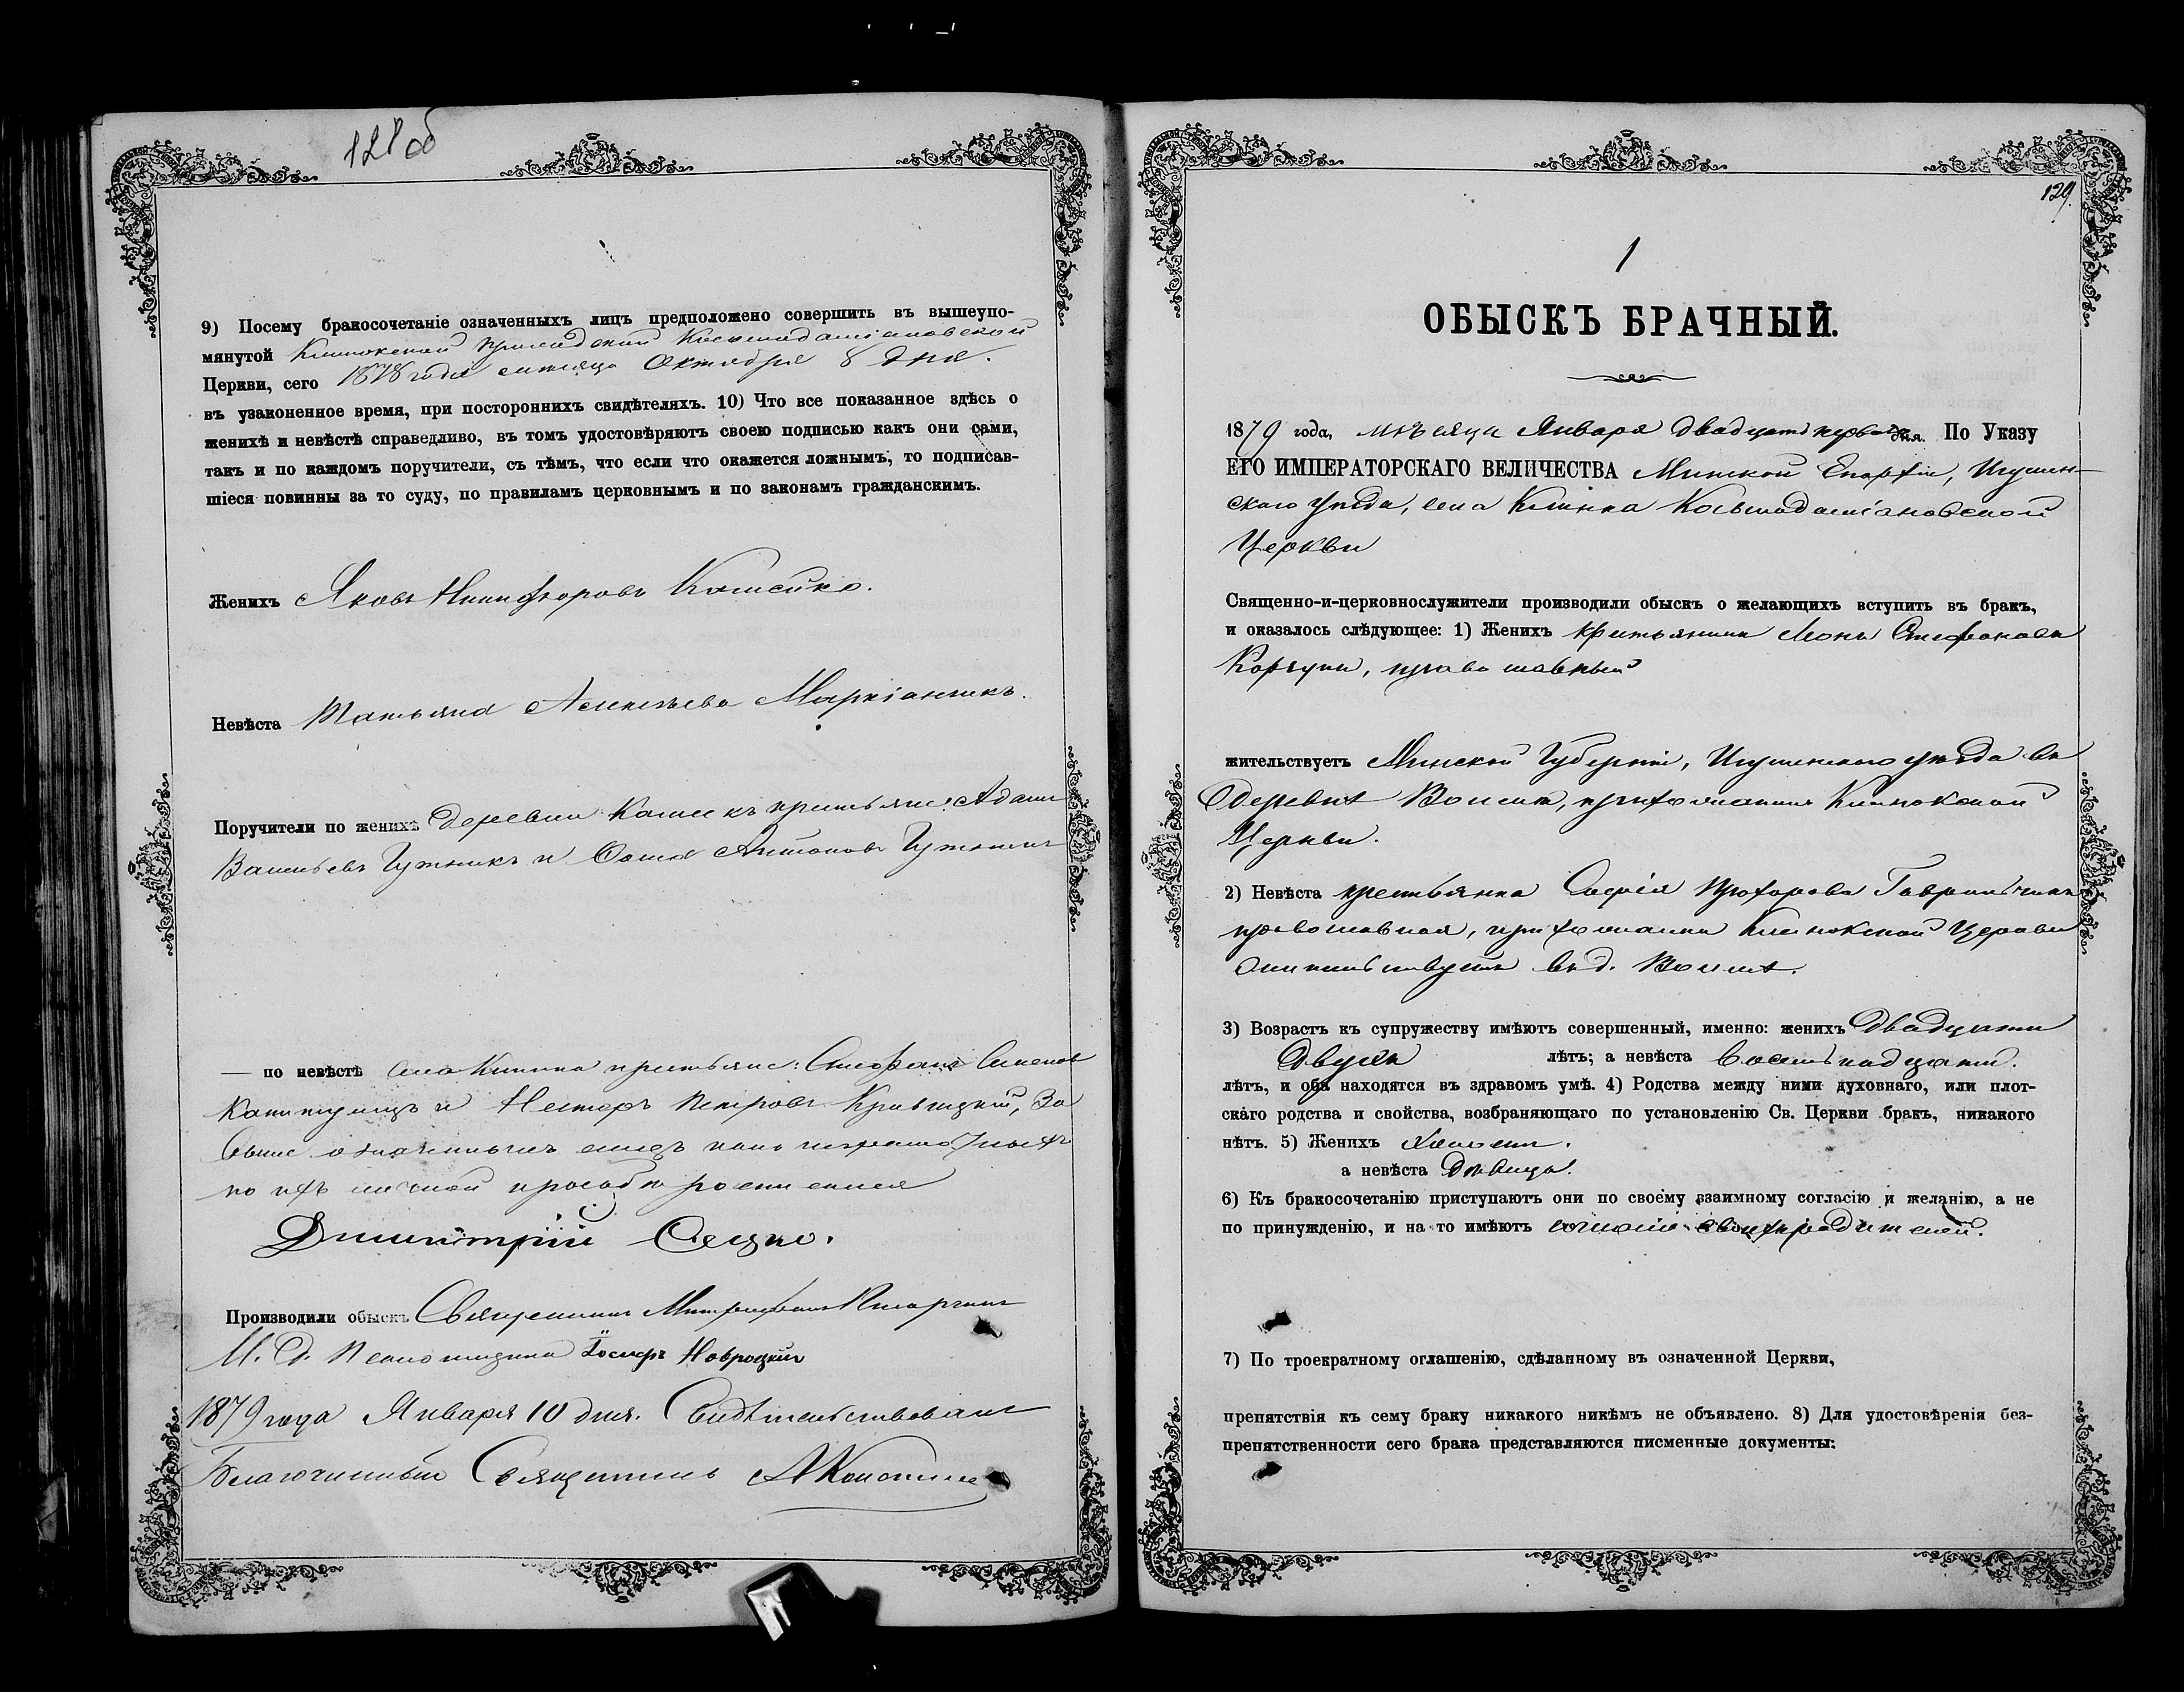 128 об
9) Посему бракосочетаніе означенныхъ лицъ предположено совершить въ вышеупо-
мянутой Клинокской приходской Космодаміановской
Церкви, сего 1878 года месяца Октября 8 дня.
въ узаконенное время, при постороннихъ свидѣтеляхъ. 10) Что все показанное здѣсь о
женихѣ и невѣстѣ справедливо, въ томъ удостовѣряютъ своею подписью какъ они сами,
такъ и по каждомъ поручители, съ тѣмъ, что если что окажется ложнымъ, то подписав-
шіеся повинны за то суду, по правиламъ церковнымъ и по законамъ гражданскимъ.
Женихъ Яковъ Никифоровъ
Невѣста Татьяна Алексѣева
Поручители по женихѣ деревни крестьяне: Адамъ
Васильевъ Гутникъ и Антоновъ Гутникъ
— по невѣстѣ села Клинка крестьяне: Стефанъ
и Несторъ Петровъ За
означенныхъ лицъ неграмотныхъ
по ихъ личной просьбѣ росписался
Димитрій
Производили обыскъ Священникъ
И. Д. Псаломщика Іосифъ Новроцкій
1879 года Января 10 дня. Свидѣтельствовалъ
Благочинный Священникъ
129.
1
ОБЫСКЪ БРАЧНЫЙ.
1879 года, мѣсяца Января двадцать перваго дня. По Указу
ЕГО ИМПЕРАТОРСКАГО ВЕЛИЧЕСТВА Минской Епархіи, Игумен-
скаго уѣзда, села Клинка Космодаміановской
Церкви
Священно-и-церковнослужители производили обыскъ о желающихъ вступить въ бракъ,
и оказалось слѣдующее: 1) Женихъ крестьянинъ Леонъ Стефановъ
Корзунъ, православный
жительствуетъ Минской Губерніи, Игуменскаго уѣзда въ
деревнѣ прихожанинъ Клинокской
Церкви.
2) Невѣста крестьянка Софія Прохорова Гаврильчикъ
православная, прихожанка Клинокской Церкви
жительствуетъ въ д.
3) Возрастъ къ супружеству имѣютъ совершенный, именно: женихъ двадцати
двухъ лѣтъ; а невѣста восемнадцати.
лѣтъ, и оба находятся въ здравомъ умѣ. 4) Родства между ними духовнаго, или плот-
скаго родства и свойства, возбраняющаго по установленію Св. Церкви бракъ, никакого
нѣтъ. 5) Женихъ холостъ.
а невѣста дѣвица.
6) Къ бракосочетанію приступаютъ они по своему взаимному согласію и желанію, а не
по принужденію, и на то имѣютъ согласіе своихъ родителей.
7) По троекратному оглашенію, сдѣланному въ означенной Церкви,
препятствія къ сему браку никакого никѣмъ не объявлено. 8) Для удостовѣренія без-
препятственности сего брака представляются писменные документы: